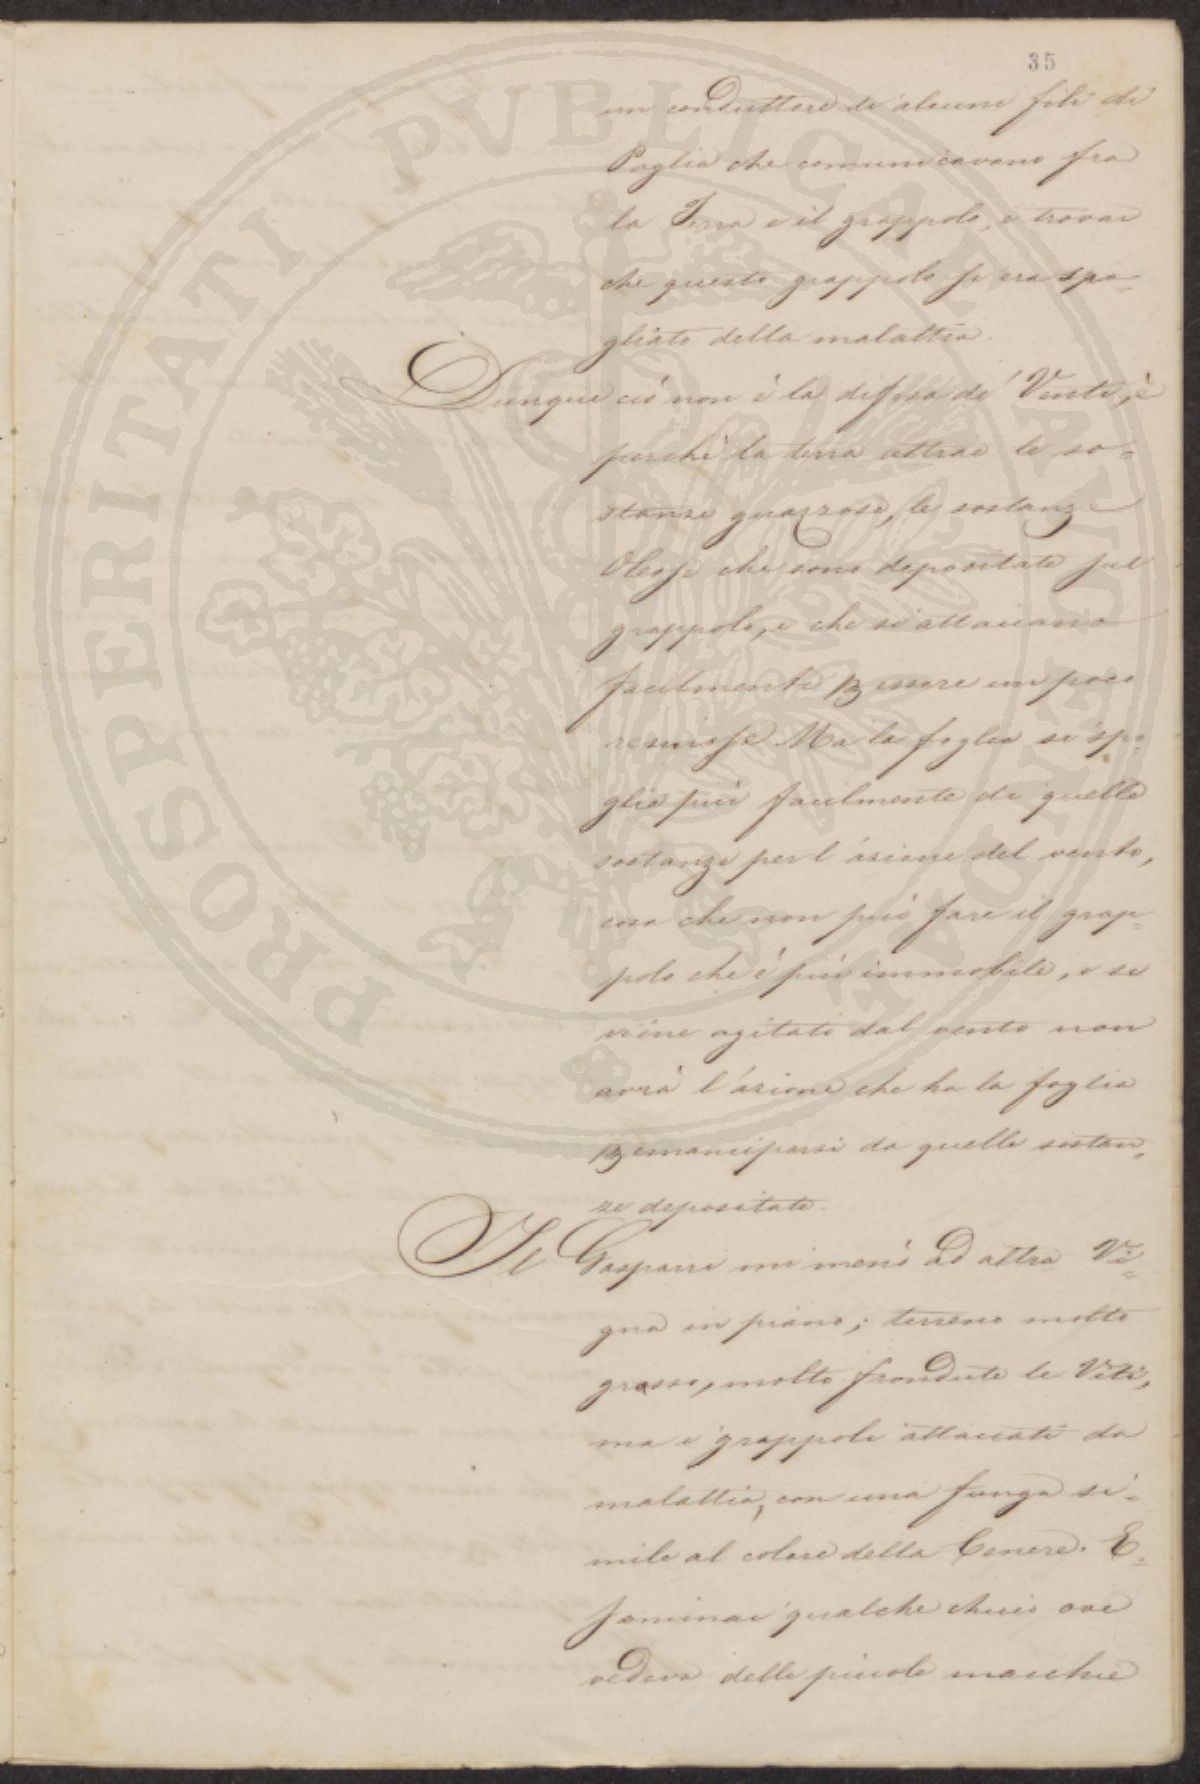 35
un conduttore di alcuni fili di
Paglia che comunicavano fra
la Terra e il grappolo, e trovai
che questo grappolo si era spo=
gliato della malattia.
Dunque ciò non è la difesa de' Venti, è
perchè la terra attrae le so=
stanze guazzose, le sostanze
Oleose che sono depositate sul
grappolo, e che si attaccano
facilmente essere un poco
resinose. Ma la foglia si spo=
glia più facilmente di quelle
sostanze per l'azione del vento,
cosa che non può fare il grap=
polo che è più immobile, e se
viene agitato dal vento non
avrà l'azione che ha la foglia
emanciparsi da quelle sostan=
ze depositate.
Il Gasparri mi menò ad altra Vi=
gna in piano; terreno molto
grasso, molto frondute le Viti,
ma i grappoli attaccati da
malattia, con una funga si=
mile al colore della Cenere. E=
saminai qualche chicco ove
vedeva delle piccole macchie
PROSPERITATI PVBLICAE AVGENDAE